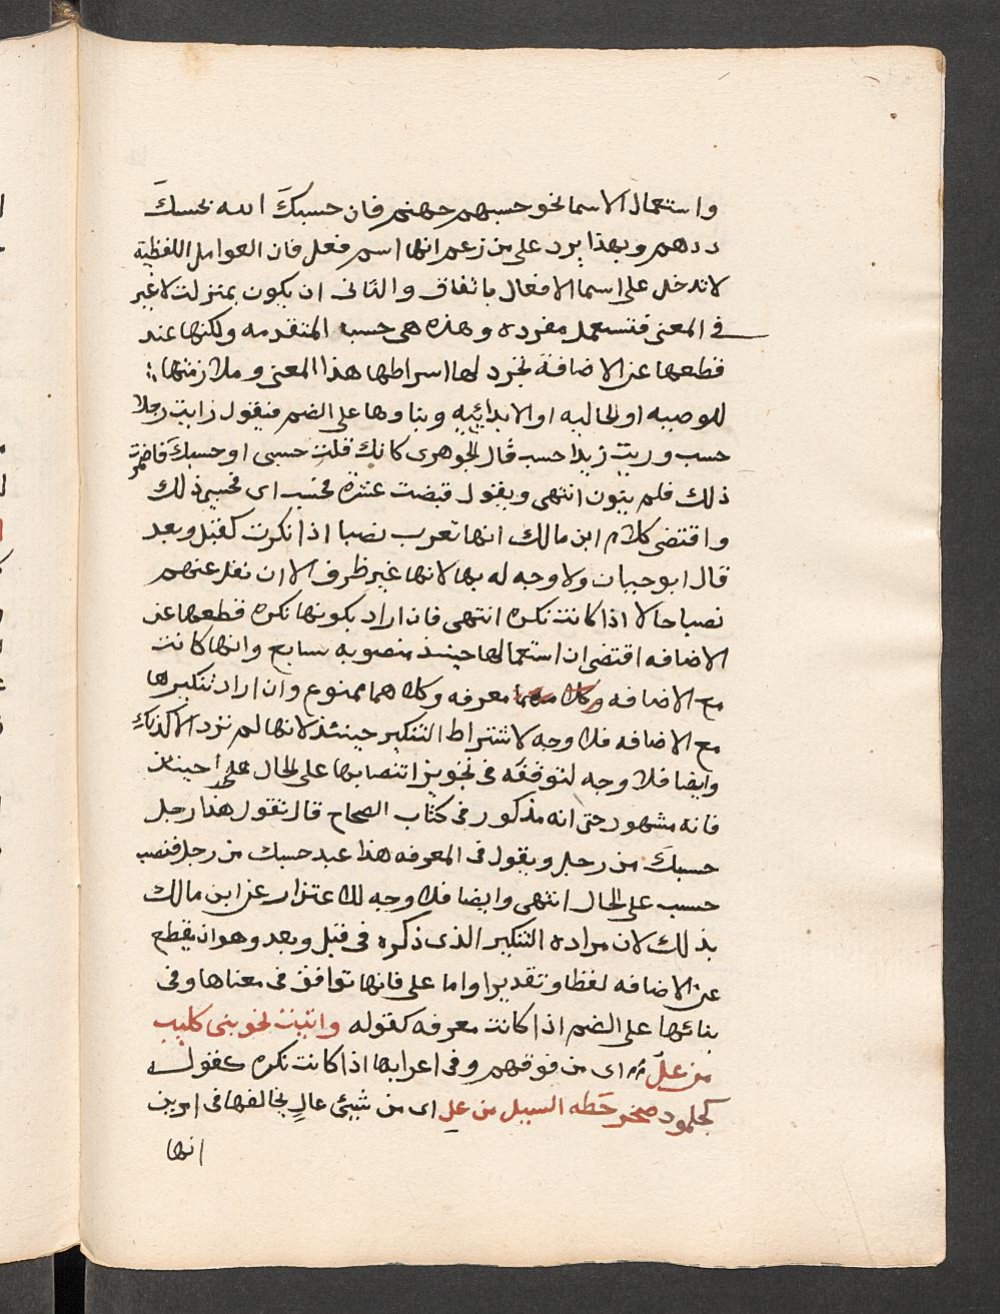 واستعمال الاسما نحو حسبهم جهنم فان حسبكَ الله بحسبكَ
درهم وبهذا يرد على من زعم انها اسم فعل فان العوامل اللفظية
لا تدخل على اسما الافعال باتفاق والثانى ان يكون بمنزلت لا غير
فى المعنى فتستعمل مفرده وهذه هى حسب المتقدمه ولكنها عند
قطعها عن الاضافة تجرد لها اسراطها هذا المعنى وملازمتها
للوصيه او لحاليه او الابدائيه وبناوها على الضم فنقول رايت رجلا
حسب وريت زيدا حسب قال لجوهرى كانك قلت حسبى او حسبكَ فاضمرت
ذلك فلم ينون انتهى ويقول قبضت عشره فحسب اى فحسبى ذلك
واقتضى كلام ابن مالك انها تعرب نصبا اذا نكرت كقبل وبعد
قال ابو حيان ولا وجه له بها لانها غير ظرف الا ان نقل عنهم
نصبا حالا اذا كانت نكره انتهى فان اراد بكونها نكره قطعها عن
الاضافه اقتضى ان استعمالها حينئذ منصوبه سايع وانها كانت
مع الاضافه معرفه وكلاهما ممنوع وان اراد تنكيرها
مع الاضافه فلا وجه لاشتراط التنكير حينئذ لانها لم ترد الا كذلك
وايضا فلا وجه لتوقفه فى تجويز انتصابها على لحال حينئذ
فانه مشهور حتى انه مذكور فى كتاب الصحاح قال تقول هذا رجل
حسبكَ من رجل ويقول فى المعرفه هذا عبد حسبك من رجل فنصب
حسب على لحال انتهى وايضا فلا وجه للاعتزار عن ابن مالك
بذلك لان مراده التنكير الذى ذكره فى قبل وبعد وهو ان يقطع
عن الاضافه لفظا وتقديرا واما على فانها توافق فى معناها وفى
بنائها على الضم اذا كانت معرفه كقوله واتيت نحو بنى كليب
من علُ اى من فوقهم وفى اعرابها اذا كانت نكره كقوله
كجلمود صخر حَطه السيل من علِ اى من شيئ عالٍ يخالفها فى امرين
انها